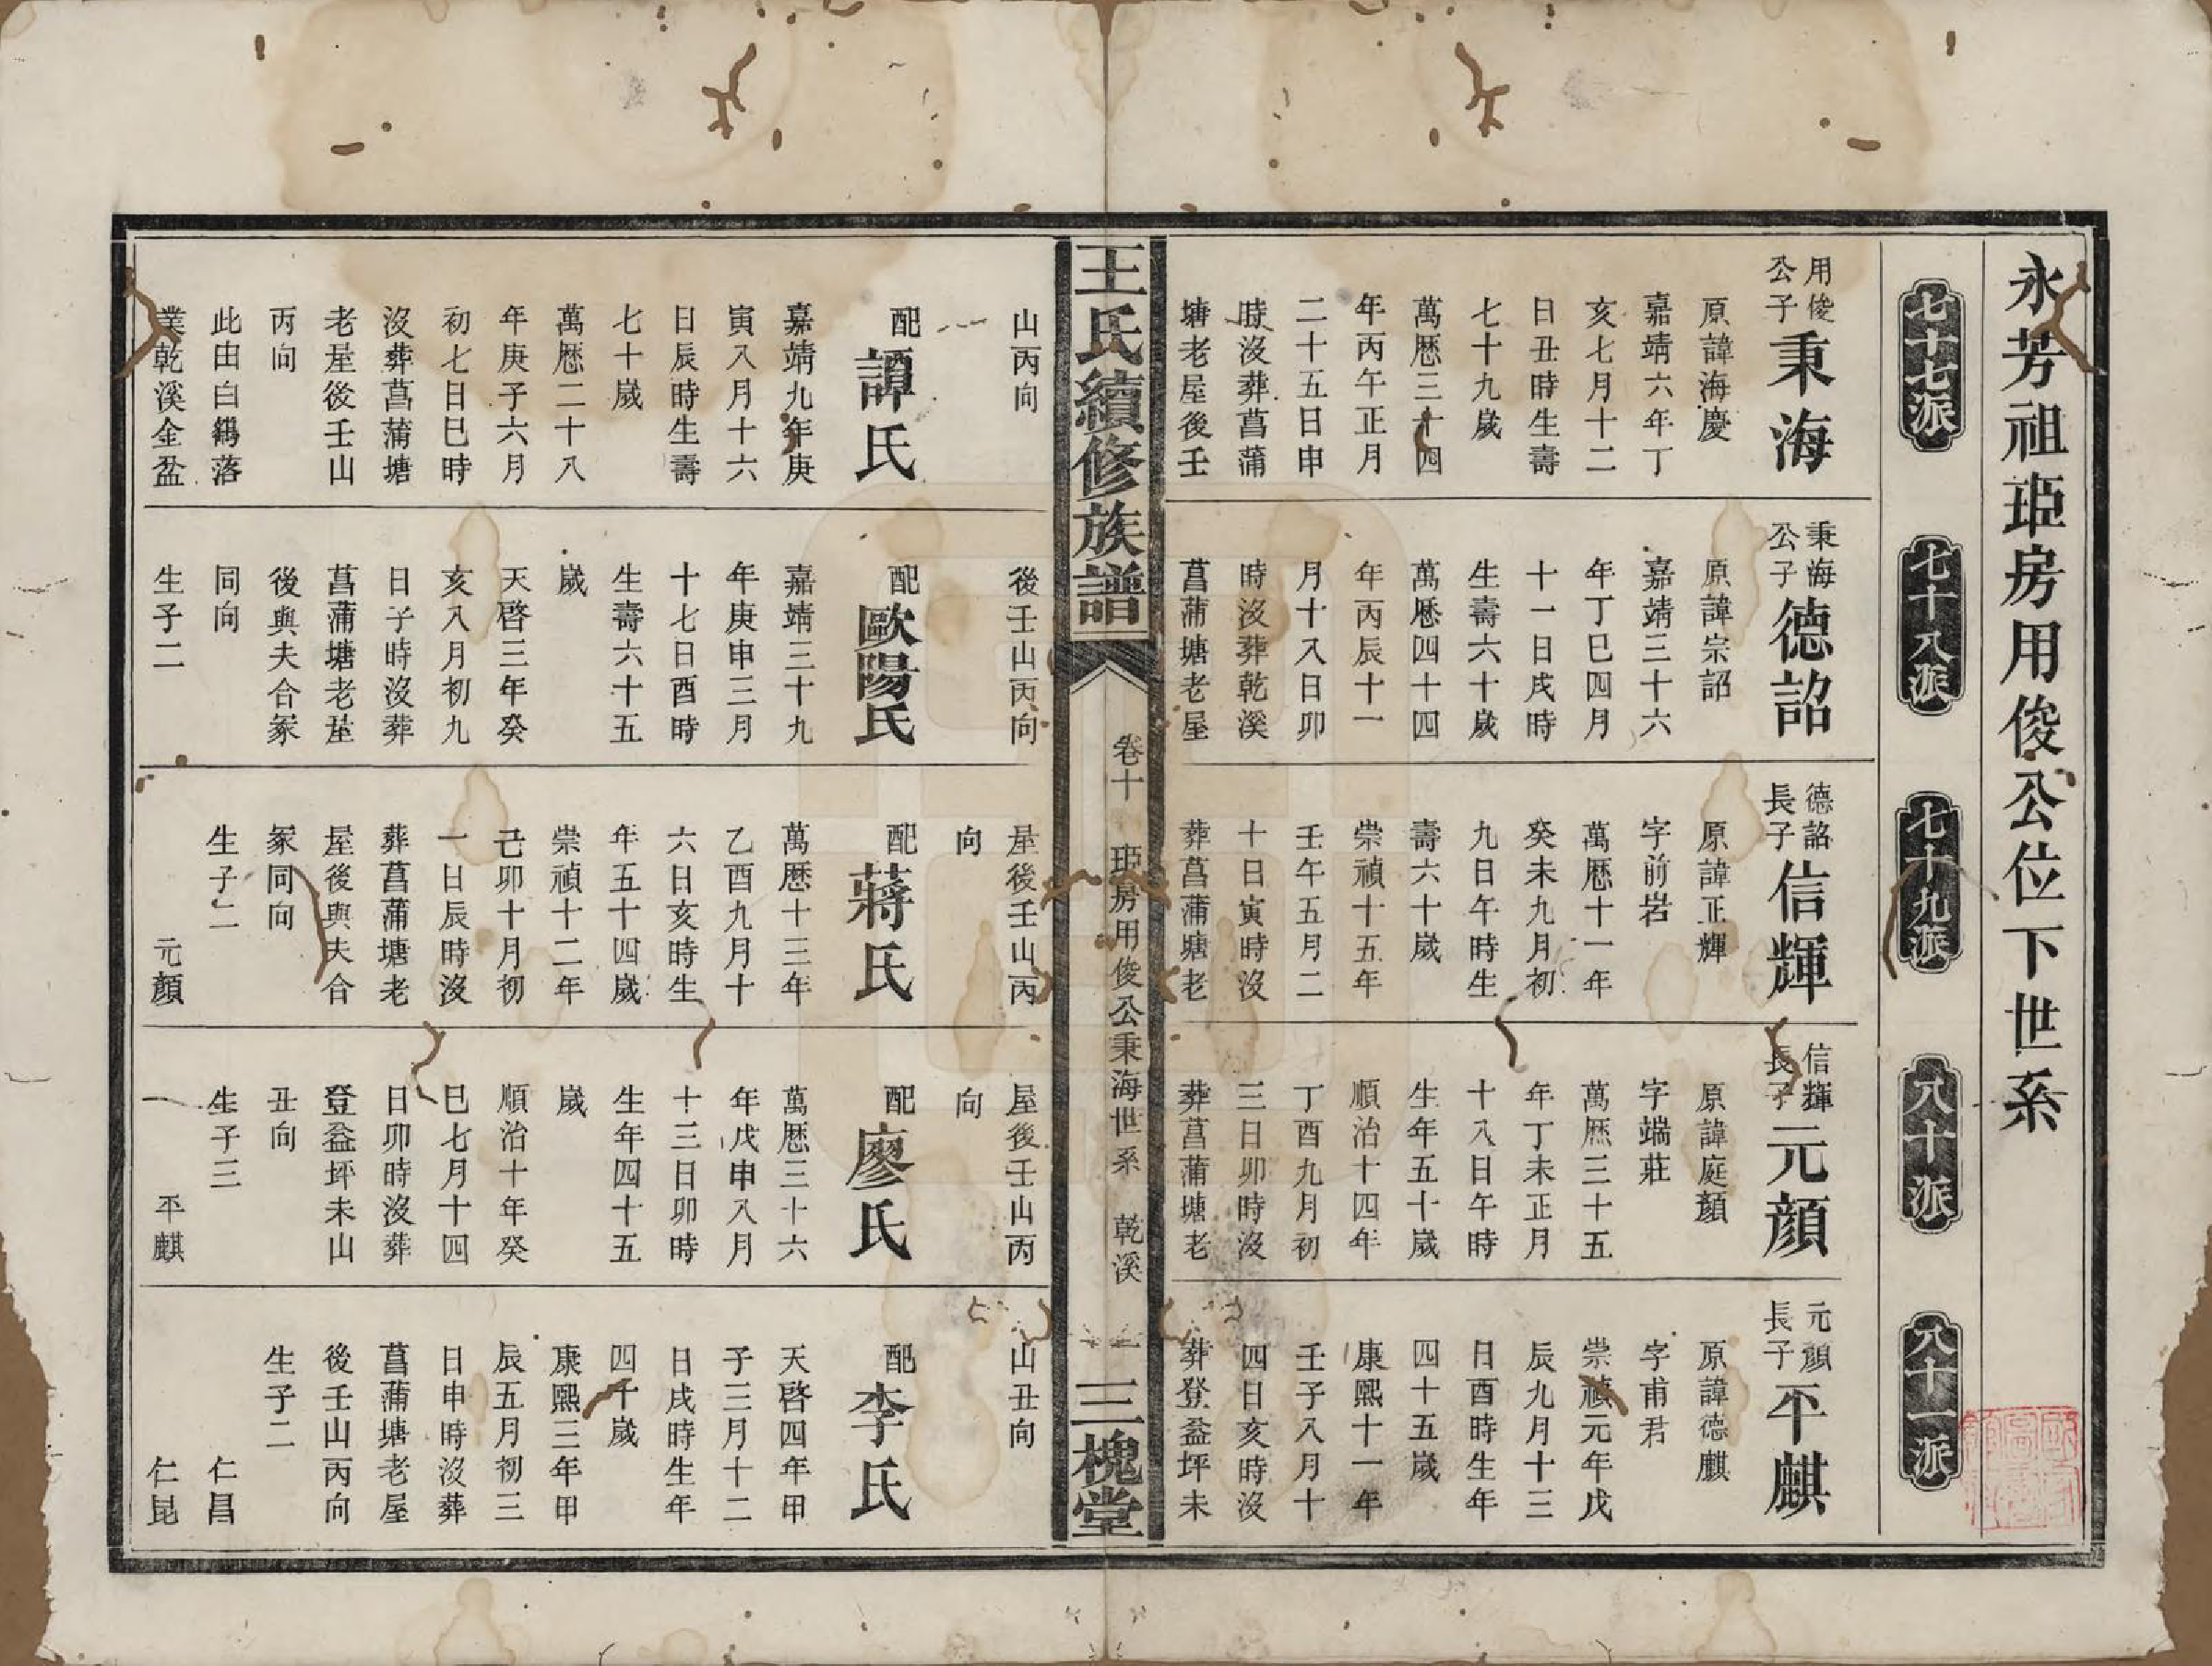 永芳祖珦房用俊公位下世系
七十七派
七十八派
七十九派
八十派
八十一派
用俊
公子
秉海
原諱海慶
嘉靖六年丁
亥七月十二
日丑時生壽
七十九歲
萬厯三十四
年丙午正月
二十五日申
時沒葬菖蒲
塘老屋後壬
山丙向
配
譚氏
嘉靖九年庚
寅入月十六
日辰時生壽
七十歲
萬厯二十八
年庚子六月
初七日巳時
沒葬菖蒲塘
老屋後壬山
丙向
此由白鶴落
業乾溪金盆
秉海
公子
德詔
原諱宗詔
嘉靖三十六
年丁巳四月
十一日戌時
生壽六十歲
萬厯四十四
年丙辰十一
月十八日卯
時沒葬乾溪
菖蒲塘老屋
後壬山丙向
配
歐陽氏
嘉靖三十九
年庚申三月
十七日酉時
生壽六十五
歲
天啓三年癸
亥八月初九
日子時沒葬
菖蒲塘老屋
後與夫合冢
同向
生子二
德詔
長子
信輝
原諱正輝
字前岩
萬厯十一年
癸未九月初
九日午時生
壽六十歲
崇禎十五年
壬午五月二
十日寅時沒
葬菖蒲塘老
屋後壬山丙
向
配
蔣氏
萬厯十三年
乙酉九月十
六日亥時生
年五十四歲
崇禎十二年
己卯十月初
一日辰時沒
葬菖蒲塘老
屋後與夫合
冢同向
生子二
元顏
信輝
長子
元顏
原諱庭顏
字端莊
萬厯三十五
年丁未正月
十八日午時
生年五十歲
順治十四年
丁酉九月初
三日卯時沒
葬菖蒲塘老
屋後壬山丙
向
配
廖氏
萬厯三十六
年戊申八月
十三日卯時
生年四十五
歲
順治十年癸
巳七月十四
日卯時沒葬
登益坪未山
丑向
生子三
平麒
元顏
長子
平麒
原諱德麒
字甫君
崇禎元年戊
辰九月十三
日酉時生年
四十五歲
康熙十一年
壬子八月十
四日亥時沒
葬登益坪未
山丑向
配
李氏
天啓四年甲
子三月十二
日戌時生年
四十歲
康熙三年甲
辰五月初三
日申時沒葬
菖蒲塘老屋
後壬山丙向
生子二
仁昌
仁昆
王氏續修族譜
卷十 珦房用俊公秉海世系 乾溪 一
三槐堂